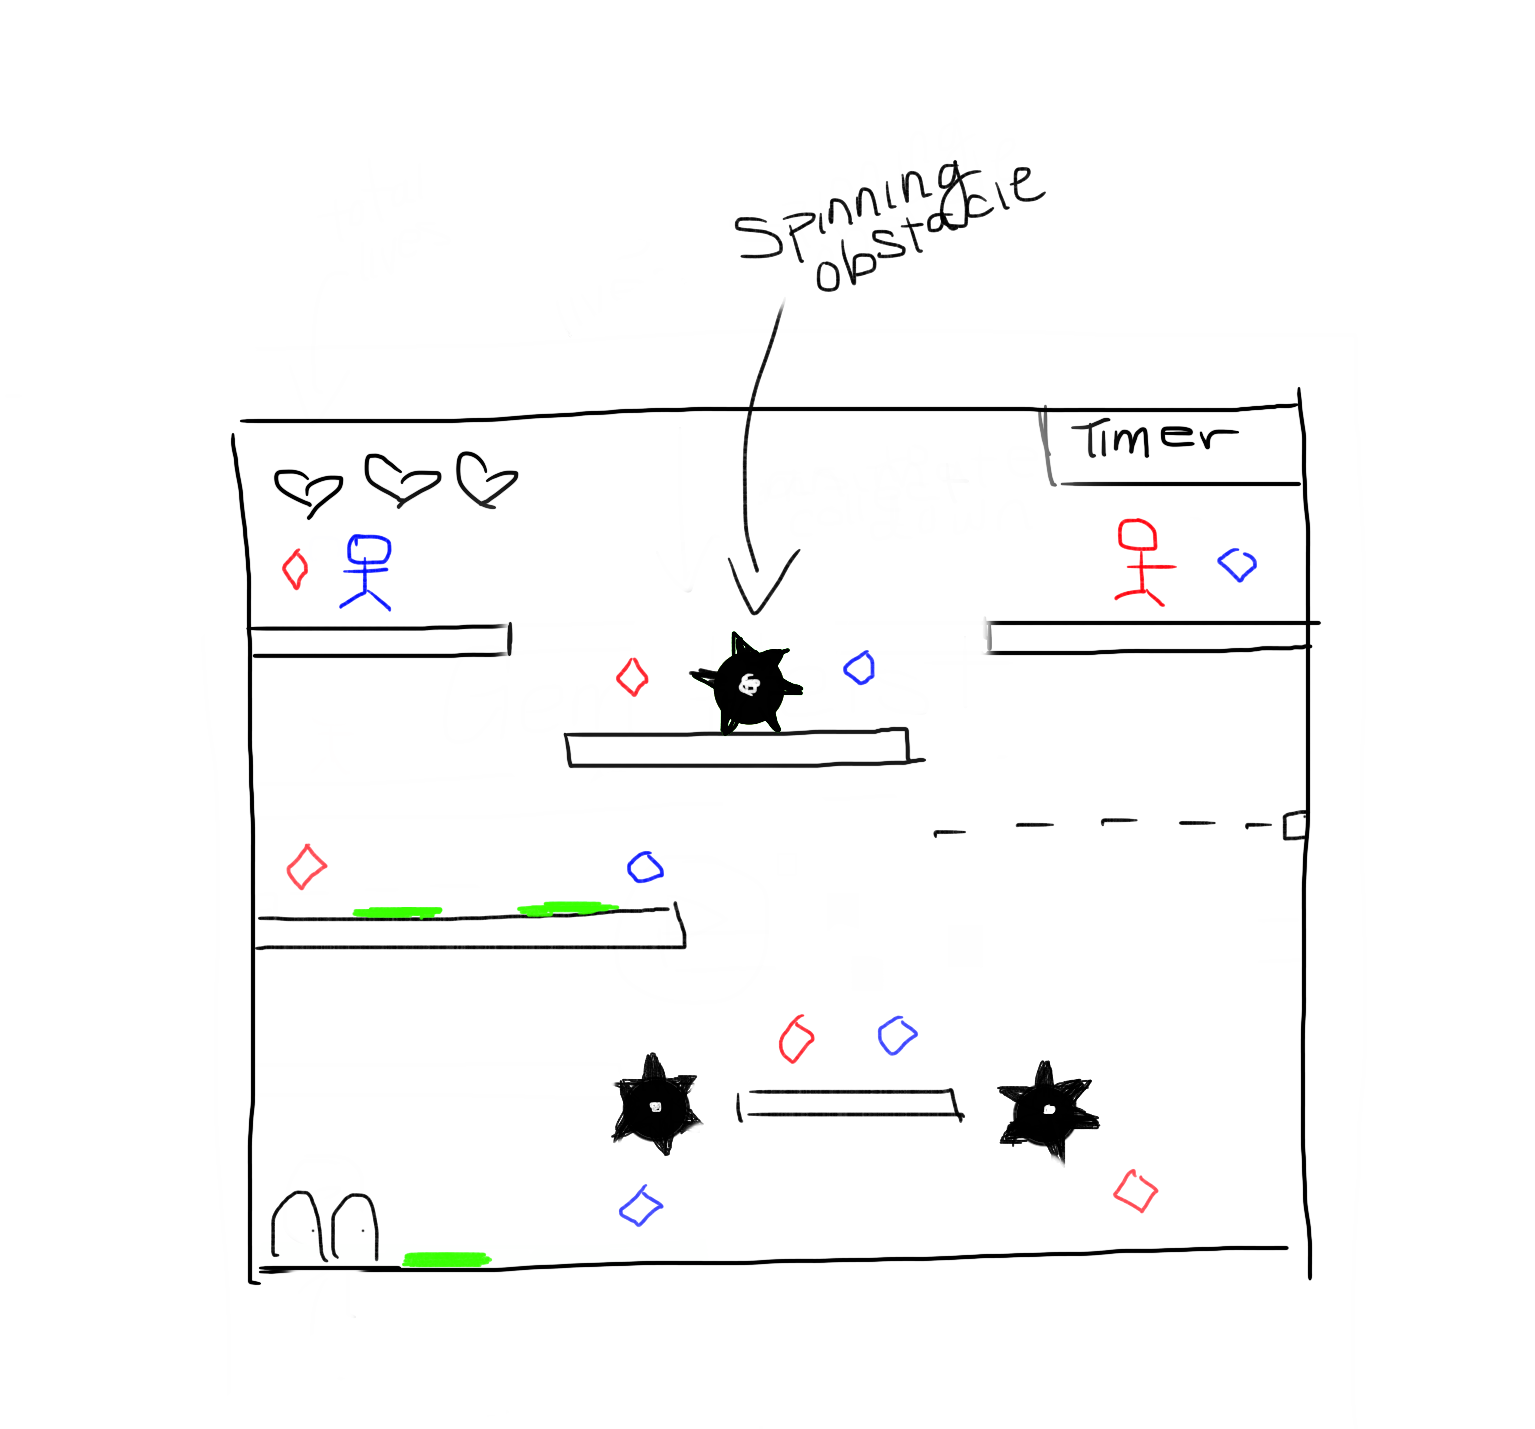 Spinning
obstacle
Timer